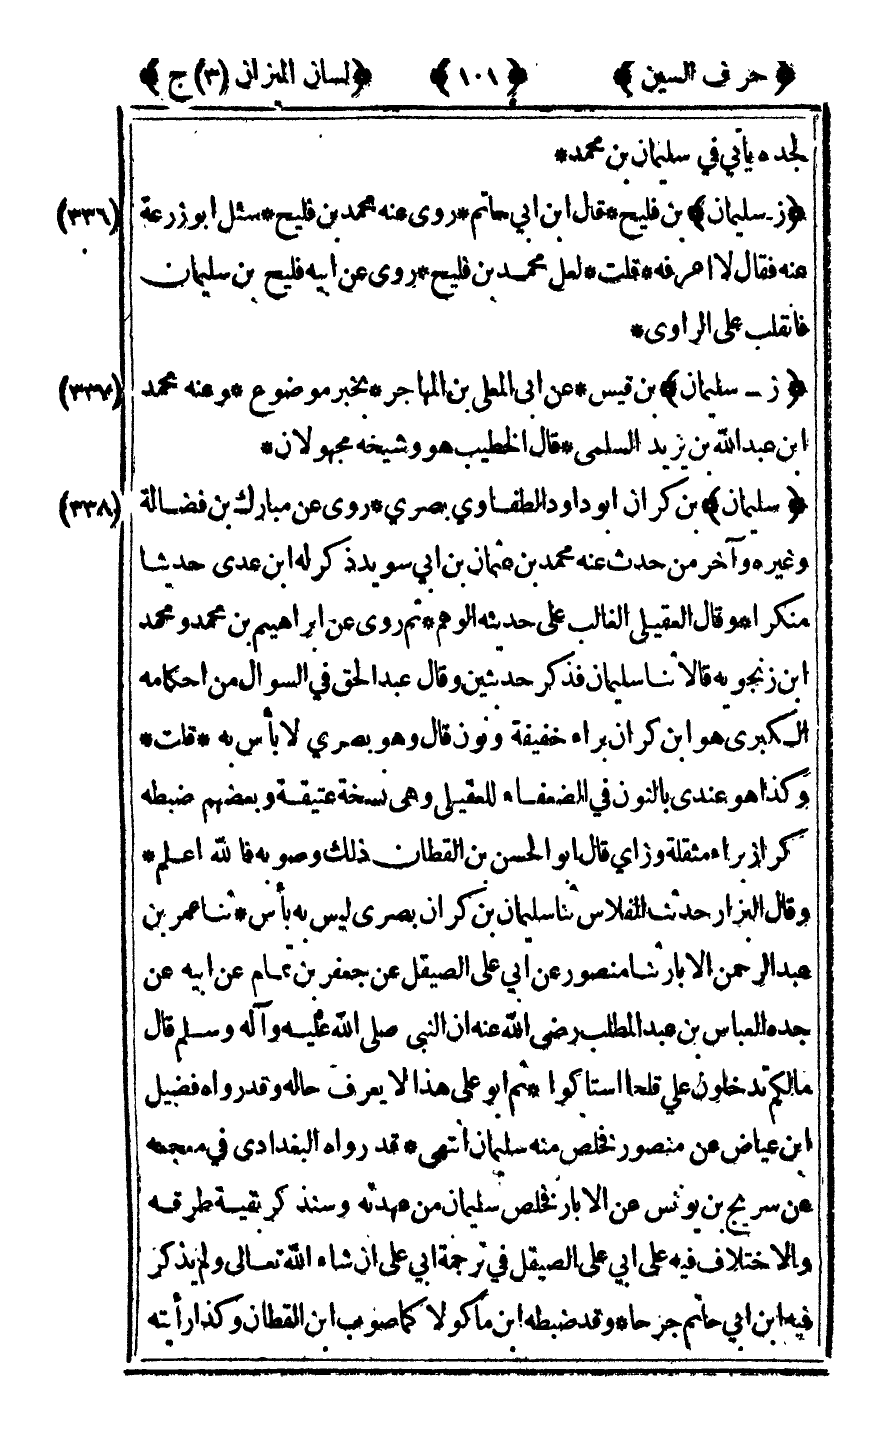 ﴿ حرف السين ﴾ ﴿ ١٠١ ﴾ ﴿ لسان الميزان (٣) ج ﴾
لجده يأتي في سليمان بن محمد*
﴿ ز ـ سليمان ﴾ بن فليح*قال ابن ابي حاتم*روى عنه محمد بن فليح*سئل ابو زرعة (٣٣٦)
عنه فقال لا اعرفه*قلت*لعل محمد بن فليح*روى عن ابيه فليح بن سليمان
فانقلب على الراوى*
﴿ ز ـ سليمان ﴾ بن قيس*عن ابى المعلى بن المهاجر*بخبر موضوع *وعنه محمد (٣٣٧)
ابن عبد الله بن يزيد السلمى*قال الخطيب هو وشيخه مجهولان*
﴿ سليمان ﴾ بن كران ابو داود الطفاوي بصري*روى عن مبارك بن فضالة (٣٣٨)
وغيره وآخر من حدث عنه محمد بن عثمان بن ابي سويد ذكر له ابن عدى حديثا
منكرا*وقال العقيلي الغالب على حديثه الوهم*ثم روى عن ابراهيم بن محمد ومحمد
ابن زنجويه قالا ثنا سليمان فذكر حديثين وقال عبد الحق في السوال من احكامه
الكبرى هو ابن كران براء خفيفة ونون قال وهو بصري لا بأس به *قلت*
وكذا هو عندى بالنون في الضعفاء للعقيلي وهى نسخة عتيقة وبعضهم ضبطه
كراز براء مثقلة وزاي قال ابو الحسن بن القطان ذلك وصوبه فالله اعلم*
وقال البزار حدثنا الفلاس ثنا سليمان بن كران بصرى ليس به بأس*ثنا عمر بن
عبد الرحمن الابار ثنا منصور عن ابي على الصيقل عن جعفر بن تمام عن ابيه عن
جده العباس بن عبد المطلب رضى الله عنه ان النبى صلى الله عليه وآله وسلم قال
مالكم تدخلون علي قلحا استاكوا *ثم ابو على هذا لا يعرف حاله وقد رواه فضيل
ابن عياض عن منصور نخلص منه سليمان انتهى*قد رواه البغدادى في معجمه
عن سريج بن يونس عن الابار فخلص سليمان من عهدته وسنذكر بقية طرقه
والاختلاف فيه على ابي على الصيقل في ترجمة ابي على ان شاء الله تعالى ولم يذكر
فيه ابن ابي حاتم جرحا*وقد ضبطه ابن ماكولا كما صوب ابن القطان وكذا رأيته